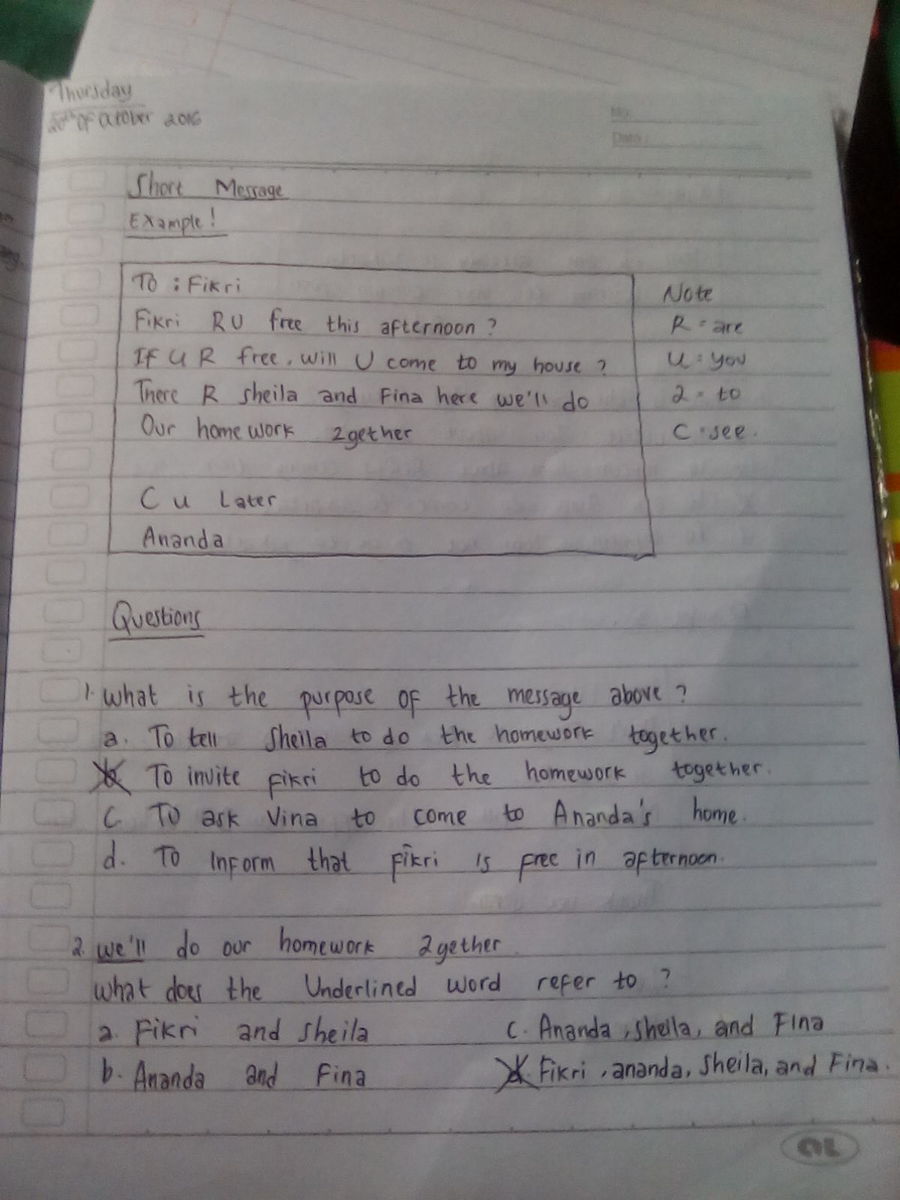 Thursday
20th of October 2016
No.
Date :
Short Message
Example!
To : Fikri
Fikri R U free this afternoon ?
If U R free, will U come to my house ?
There R Sheila and Fina here we'll do
Our home work 2gether
C u Later
Ananda
Note
R = are
U = you
2 = to
C = see.
Questions
1. What is the purpose of the message above ?
a. To tell Sheila to do the homework together.
b. To invite fikri to do the homework together.
c. To ask Vina to come to Ananda's home.
d. To Inform that fikri is free in afternoon.
2. we'll do our homework 2gether
What does the Underlined word refer to ?
a. Fikri and Sheila
b. Ananda and Fina
c. Ananda, Sheila, and Fina
d. Fikri, ananda, Sheila, and Fina.